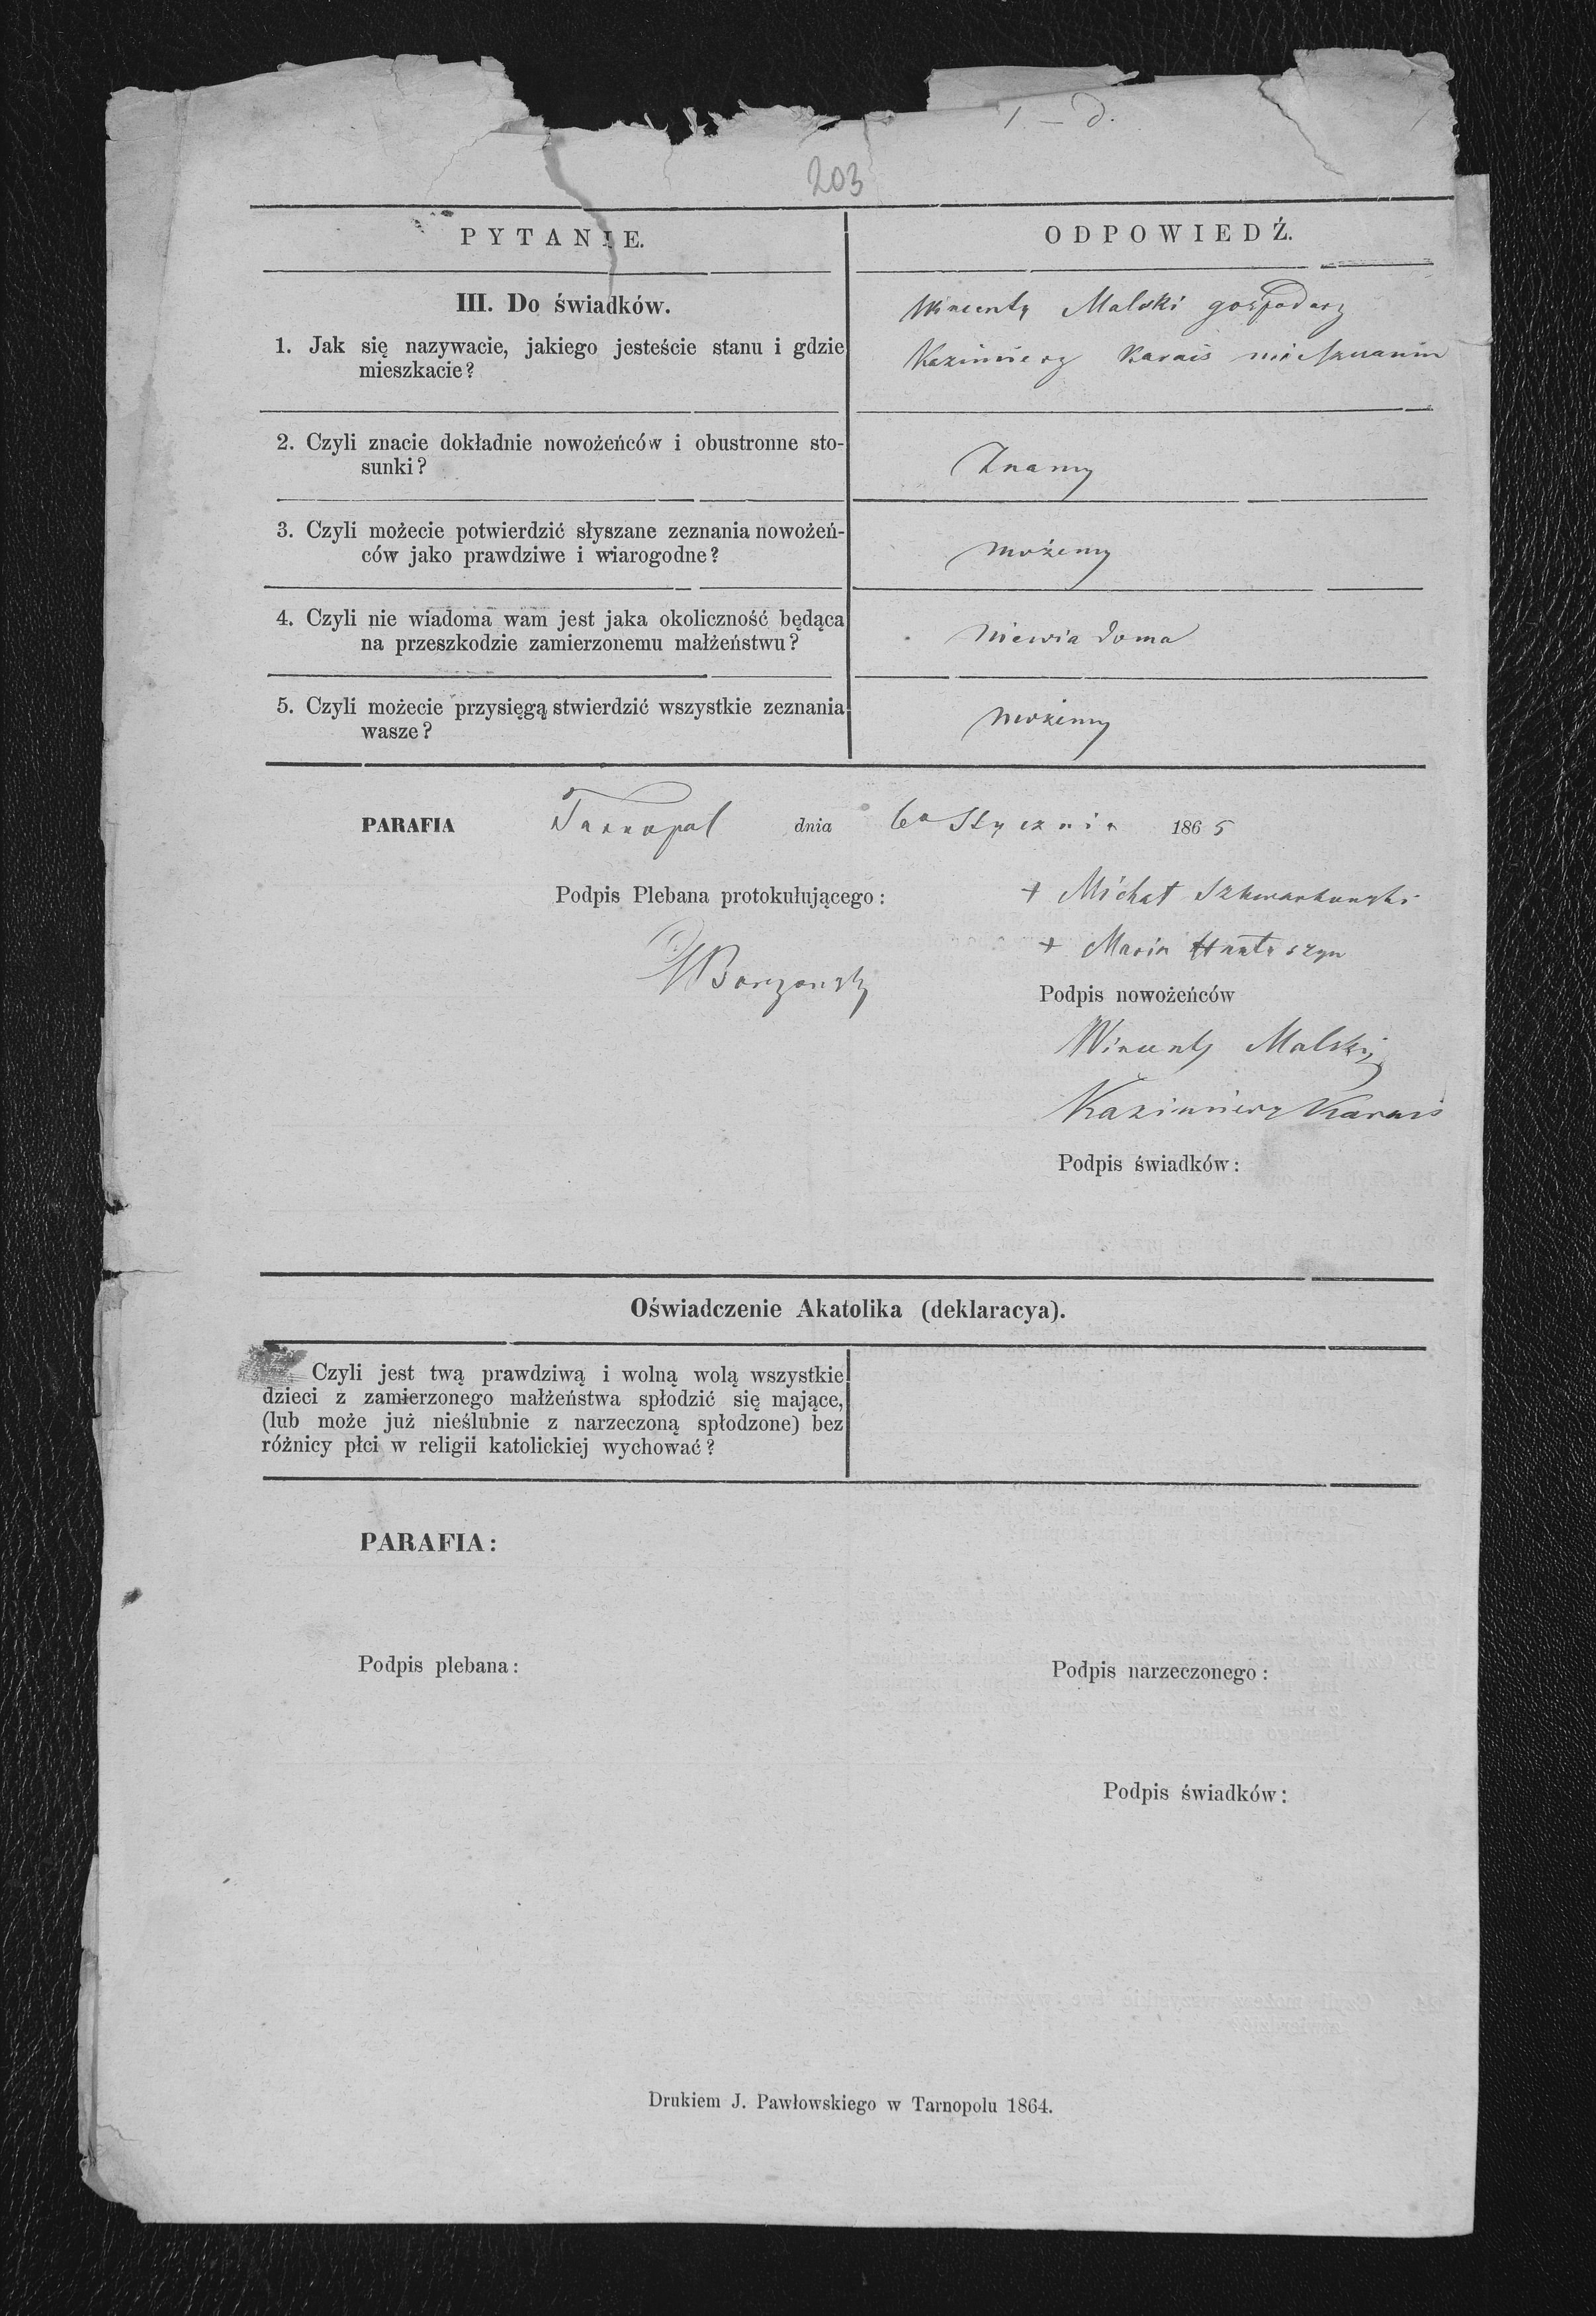 1 – d.
203
PYTANIE.
ODPOWIEDŹ.
III. Do świadków.
1. Jak się nazywacie, jakiego jesteście stanu i gdzie
mieszkacie?
Wincenty Malski gospodarz
Kazimierz Karais mieszczanin
2. Czyli znacie dokładnie nowożeńców i obustronne sto-
sunki?
Znamy
3. Czyli możecie potwierdzić słyszane zeznania nowożeń-
ców jako prawdziwe i wiarogodne?
możemy
4. Czyli nie wiadoma wam jest jaka okoliczność będąca
na przeszkodzie zamierzonemu małżeństwu?
niewiadoma
5. Czyli możecie przysięgą stwierdzić wszystkie zeznania
wasze?
możemy
PARAFIA Tarnopol dnia 6o Stycznia 1865
Podpis Plebana protokułującego:
+ Michał
+ Maria
Podpis nowożeńców
Wincenty Malski
Kazimierz Karais
Podpis świadków:
Oświadczenie Akatolika (deklaracya).
Czyli jest twą prawdziwą i wolną wolą wszystkie
dzieci z zamierzonego małżeństwa spłodzić się mające,
(lub może już nieślubnie z narzeczoną spłodzone) bez
różnicy płci w religii katolickiej wychować?
PARAFIA:
Podpis plebana:
Podpis narzeczonego:
Podpis świadków:
Drukiem J. Pawłowskiego w Tarnopolu 1864.